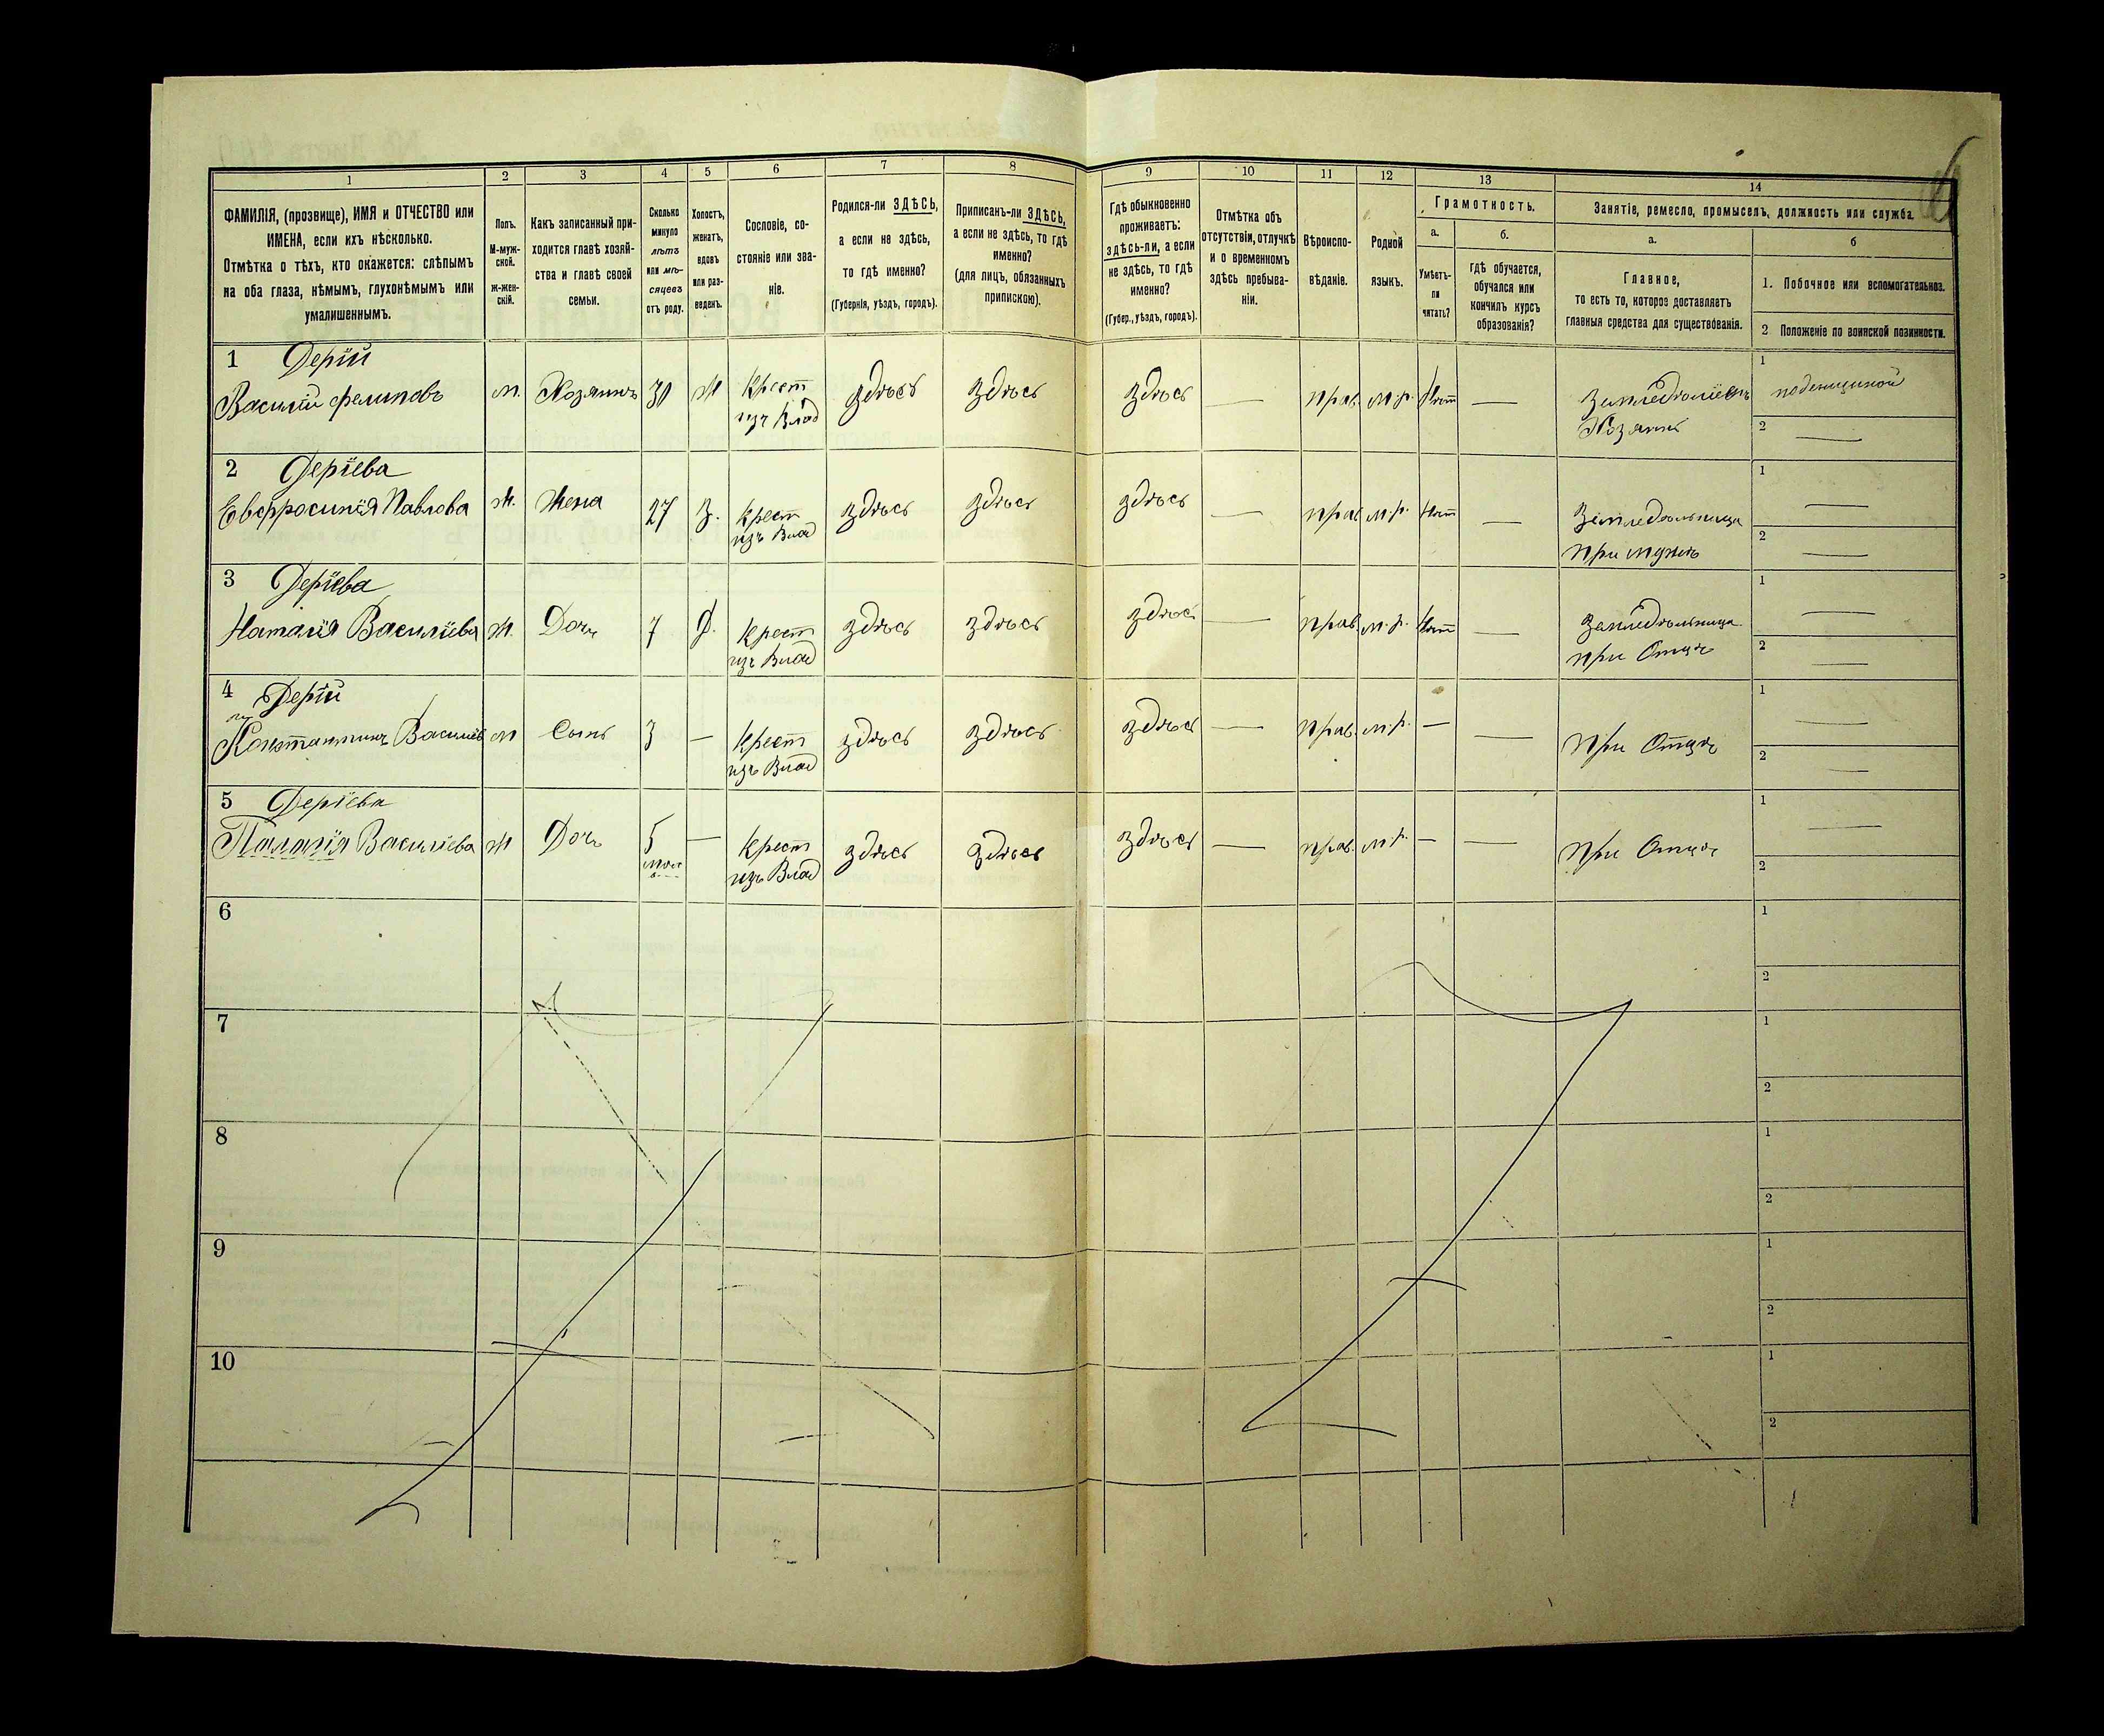 1
2
3
4
5
6
7
8
ФАМИЛІЯ, (прозвище), ИМЯ и ОТЧЕСТВО или
ИМЕНА, если ихъ нѣсколько.
Отмѣтка о тѣхъ, кто окажется: слѣпымъ
на оба глаза, нѣмымъ, глухонѣмымъ или
умалишеннымъ.
Полъ.
М-муж-
ской.
ж-жен-
скій.
Какъ записанный при-
ходится главѣ хозяй-
ства и главѣ своей
семьи.
Сколько
минуло
лѣтъ
или мѣ-
сяцевъ
отъ роду.
Холостъ,
женатъ,
вдовъ
или раз-
веденъ.
Сословіе, со-
стояніе или зва-
ніе.
Родился-ли ЗДѢСЬ,
а если не здѣсь,
то гдѣ именно?
(Губернія, уѣздъ, городъ).
Приписанъ-ли ЗДѢСЬ,
а если не здѣсь, то гдѣ
именно?
(для лицъ, обязанныхъ
припискою).
9
10
11
12
13
14
Гдѣ обыкновенно
проживаетъ:
здѣсь-ли, а если
не здѣсь, то гдѣ
именно?
(Губер., уѣздъ, городъ).
Отмѣтка объ
отсутствіи, отлучкѣ
и о временномъ
здѣсь пребыва-
ніи.
Вѣроиспо-
вѣданіе.
Родной
языкъ.
Грамотность.
а.
Умѣетъ-
ли
читать?
б.
гдѣ обучается,
обучался или
кончилъ курсъ
образованія?
Занятіе, ремесло, промыселъ, должность или служба.
а.
Главное,
то есть то, которое доставляетъ
главныя средства для существованія.
б
1. Побочное или вспомогательное.
2 Положеніе по воинской повинности.
1 Дерій
Василій Фелиповъ
м. Хозяинъ 30 Ж Крест
изъ Влад
Здѣсь Здѣсь Здѣсь — прав. м.р. Нѣт —
Хозяинъ
1 поденщиной
2 —
2 Деріева
Евфросинія Павлова
Ж. Жена 27 З. Крест
изъ Влад
Здѣсь Здѣсь Здѣсь — прав м.р. Нѣт —
Земледѣльница
при мужѣ
1 —
2 —
3 Деріева
Наталія Василіева
Ж. Дочь 7 Д. Крест
изъ Влад
Здѣсь Здѣсь Здѣсь — прав. м.р. Нѣт —
Земледѣльница
при Отцѣ
1 —
2 —
4 Дерій
Константинъ Василіев
м Сынъ 3 — Крест
изъ Влад
Здѣсь Здѣсь Здѣсь — прав. м.р. — —
при Отцѣ
1 —
2 —
5 Деріева
Палагія Василіева
Ж Дочь 5
мѣс
— Крест
изъ Влад
Здѣсь Здѣсь Здѣсь — прав. м.р. — —
при Отцѣ
1 —
2
6
1
2
7
1
2
8
1
2
9
1
2
10
1
2